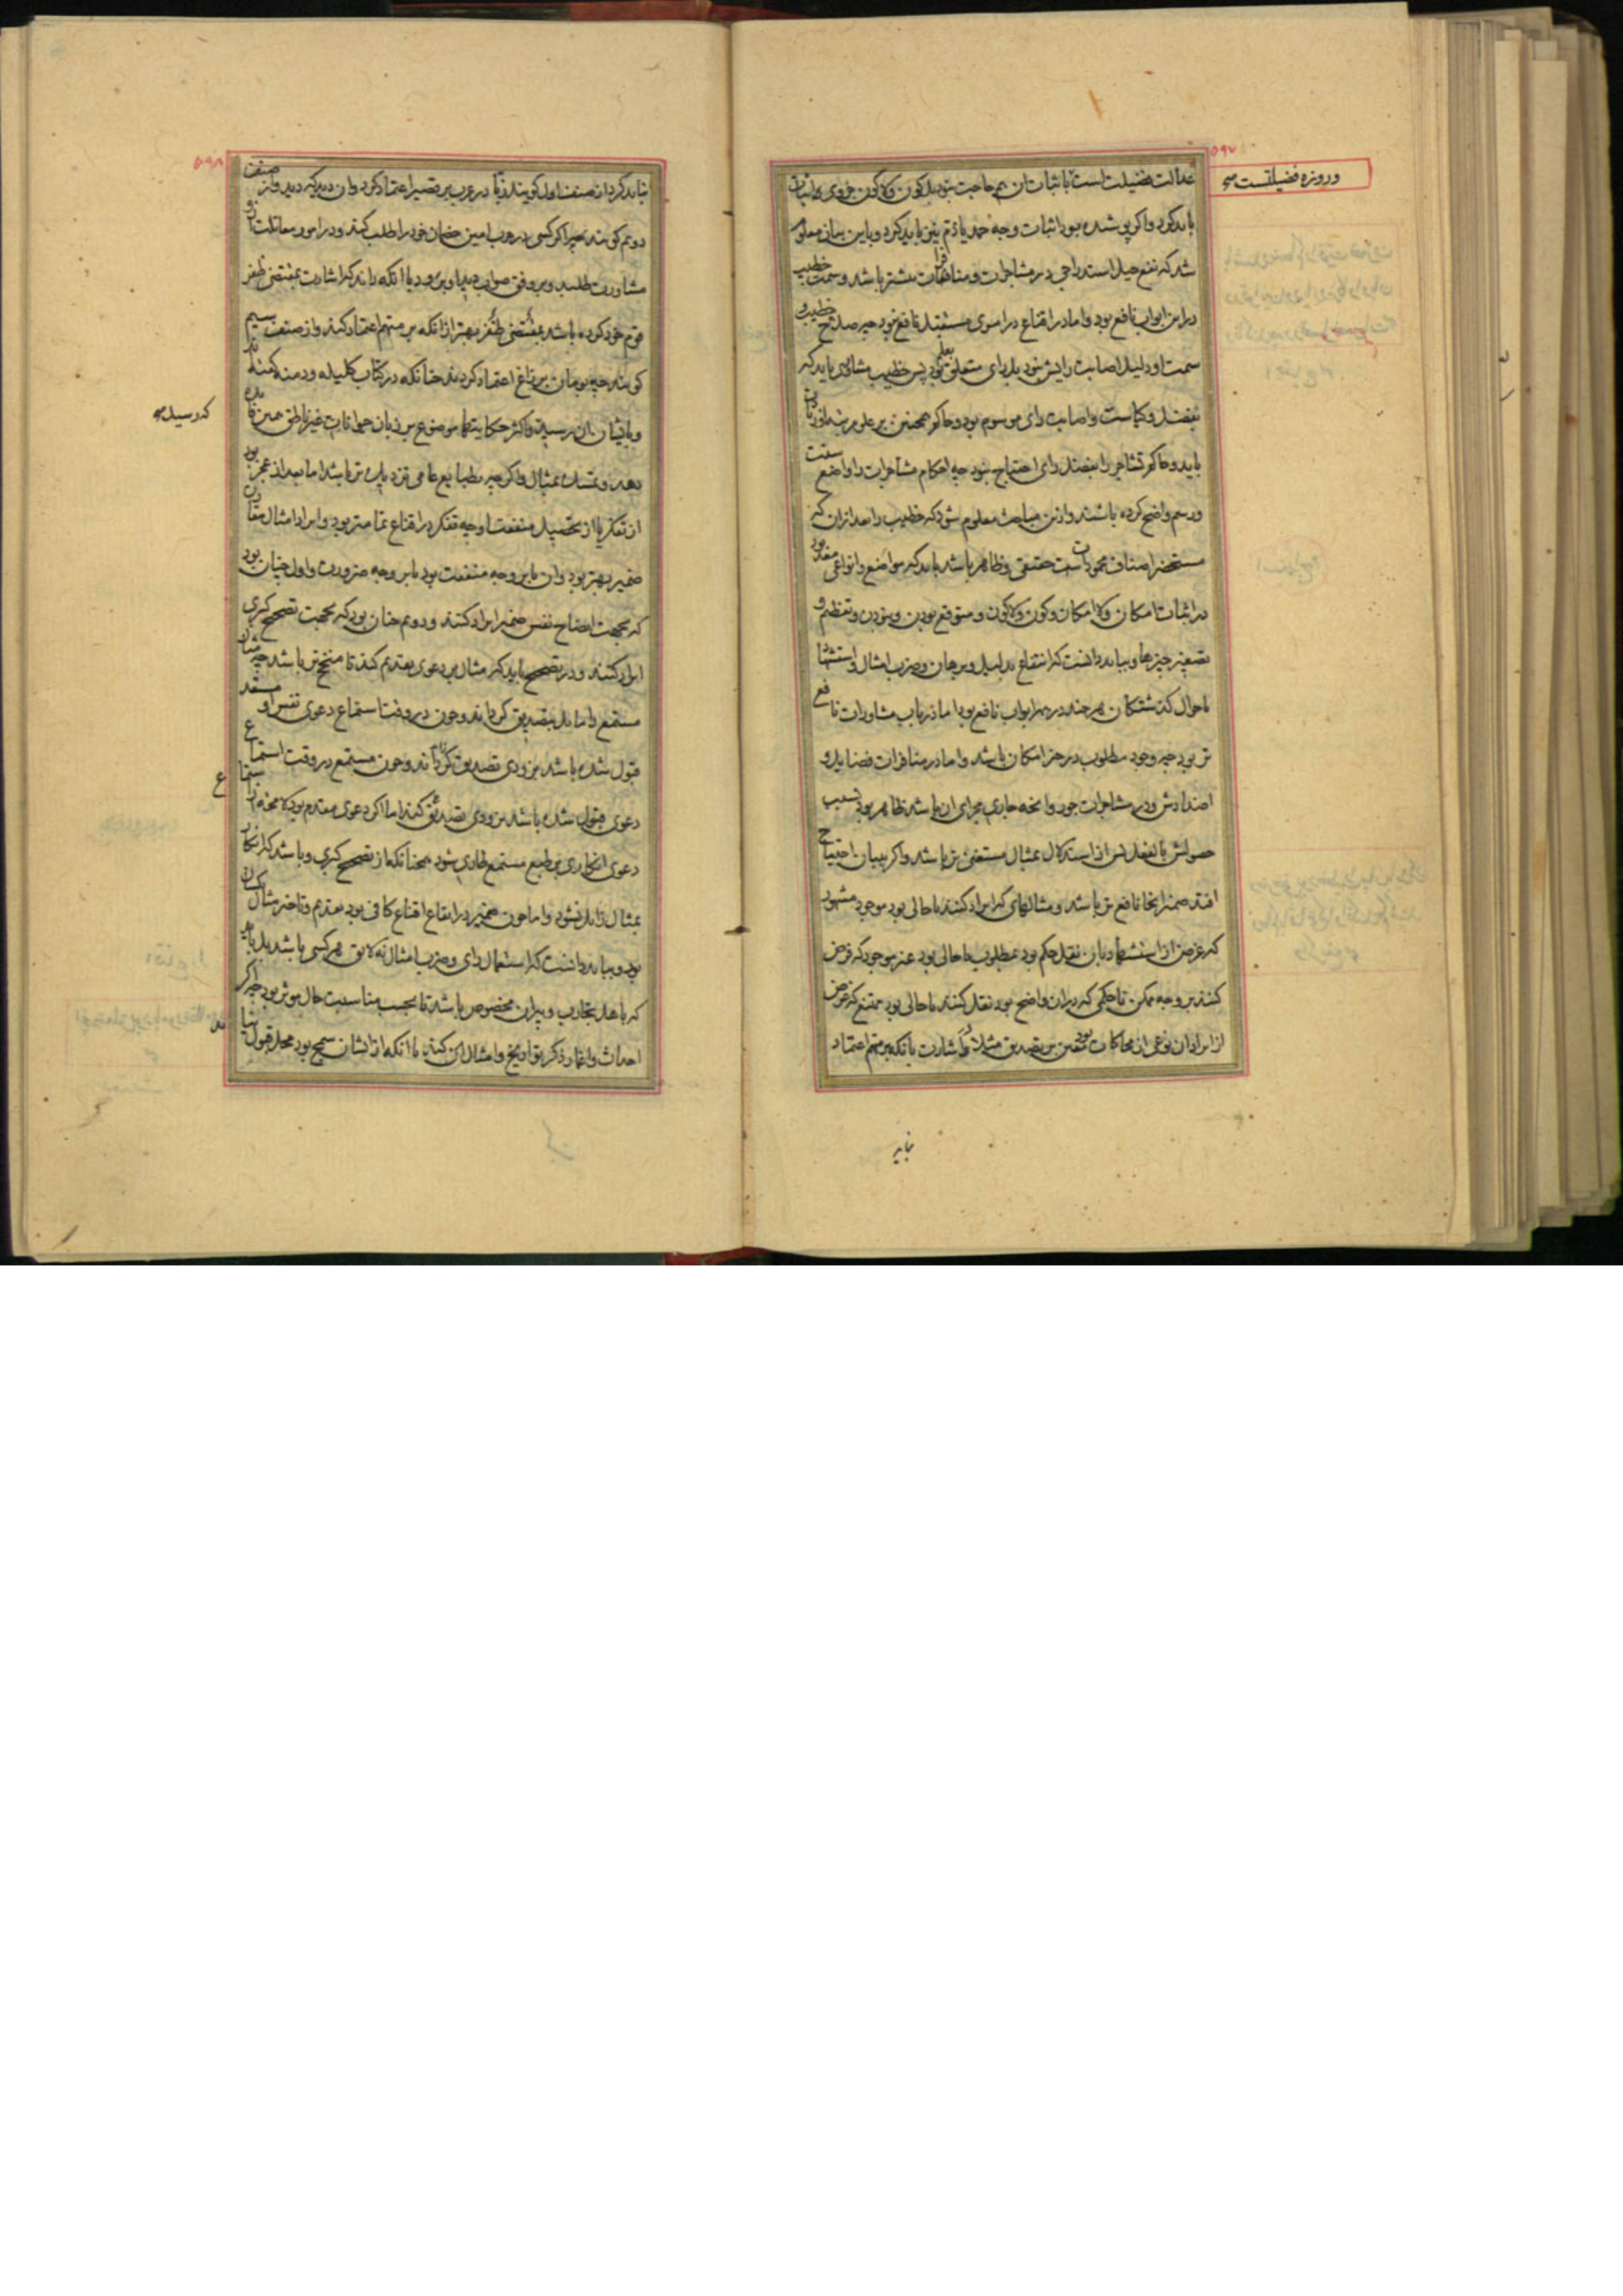 ۵۹۷
و روزه فضیلتست صح
عدالت فضیلت است باثبات آن هم حاجت نبود بل کون ولاکون جزوی باثبات
باید کرد و اگر پوشیده بود اثبات وجه حمد یا ذم نیز باید کرد و باین بیان معلوم
شد که نفع حیل استدراجی در مشاجرات و منافرات بیشتر باشد و سمت خطیب
در این ابواب نافع بود و اما در اقناع در اموری مستقبل نافع نبود چه صلاح خطیب و
سمت او دلیل اصابت رایش نبود بل رای متعلق بود پس خطیب مشاوری باید که
بفضل و کیاست و اصابت رای موسوم بود و حاکم همچنین بر علوم مشاورات
باید و حاکم تشاجر را بفضل رای احتیاج نبود چه احکام مشاجرات را واضع سنت
و رسم واضح کرده باشند و ازین مباحث معلوم شود که خطیب را بعد از آن که
مستحضر اصناف محمودات حقیقی و ظاهر باشد باید که مواضع و انواعی معد بود
در اثبات امکان ولا امکان و کون ولاکون و متوقع بودن و نبودن و تعظیم و
تصغیر چیزها و بباید دانست که انتفاع بدلیل و برهان و ضرب امثال و استشهاد
باحوال گذشتگان هر چند در همه ابواب نافع بود اما در باب مشاورات نافع
تر بود چه وجود مطلوب در حیز امکان باشد و اما در منافرات فضایل و
اضدادش و در مشاجرات جور و انچه جاری مجرای آن باشد ظاهر بود بسبب
حصولش بالفعل پس از استدلال بمثال مستغنی تر باشد و اگر ببیان احتیاج
افتد ضمیر انجا نافع تر باشد و مثالهای که ایراد کنند یا حالی بود موجود مشهور
که غرض از استشهاد بآن نقل حکم بود بمطلوب یا حالی بود غیر موجود که فرض
کنند بر وجه ممکن تا حکمی که در آن واضح بود نقل کنند یا حالی بود ممتنع که غرض
از ایراد آن نوعی از محاکات بود معین بر تصدیق مثلا در اشارت بآنکه بر متهم اعتماد
نباید
۵۹۸
نباید کرد از صنف اول گویند زبّا در عرب بر قصیر اعتماد کرد و آن دید که دید و از صنف
دوم گویند چه اگر کسی در حرب امین خصمان خود را طلب کند و در امور مقاتلت با او
مشاورت طلبد و بر وفق صواب دید او برود با آنکه داند که اشارت بمقتضی ظفر
قوم خود کرده باشد بمقتضی ظفر بهتر از آنکه بر متهم اعتماد کند و از صنف سیم
گویند چه بومان بر زاغ اعتماد کردند چنانکه در کتاب کلیله و دمنه گفته اند
و بایشان آن رسید و اکثر حکایتها موضوع بر زبان حیوانات غیر ناطق همین فایده
که رسید صح
دهد و تمسک بمثال و اگر چه بطبایع عامی نزدیک تر باشد اما بعد از عجز بود
از تفکر یا از تحصیل منفعت او چه تفکر در اقناع تمامتر بود و ایراد امثال مقارن
ضمیر بهتر بود و آن یا بر وجه منفعت بود یا بر وجه ضرورت و اول چنان بود
که بجهت ایضاح نفس ضمیر ایراد کنند و دوم چنان بود که بجهت تصحیح کبری
ایراد کنند و در تصحیح باید که مثال بر دعوی تقدیم کنند تا منجح تر باشد چه مثال
مستمع را مایل بتصدیق گرداند و چون در وقت استماع دعوی نفس او مستعد
قبول شده باشد بزودی تصدیق گرداند و چون مستمع در وقت استماع
دعوی قبول شده باشد بزودی تصدیق کند اما اگر دعوی مقدم بود
دعوی انکاری بر طبع مستمع طاری شود همچنانکه از تصحیح کبری و باشد که انکار
بمثال زایل نشود و اما چون ضمیر در ایقاع اقناع کافی بود تقدیم و تاخیر مثال یکسان
بود و بباید دانست که استعمال رای و ضرب امثال نه لایق هر کسی باشد بل باید
که باهل تجارب و پیران مخصوص باشد تا بحسب مناسبت حال موثر بود چه اگر
احداث و اغمار ذکر تواریخ و امثال آن کنند با آنکه از ایشان سمج بود محل قبول نیابد